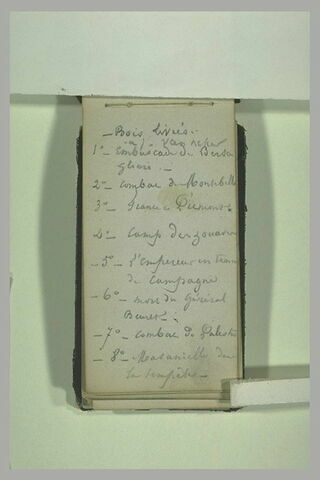 - Bois livrés -
1° - embuscade de Bersa
glieri. -
2° - combat de Montebello
3° - France Piémont
4° - camp des zouaves
- 5° - l'empereur en tenue
de campagne
- 6° - mort du général
Beuret -
- 7° - combat de Palestro
- 8° - Masaniello dans
la tempête -